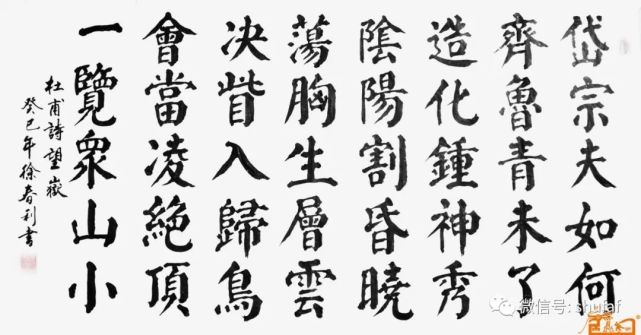 岱宗夫如何
齊魯青未了
造化鍾神秀
陰陽割昏曉
蕩胸生層雲
决眥入歸鳥
會當凌絕頂
一覽眾山小
杜甫詩望嶽
癸巳年徐春利書
微信号: shufaf